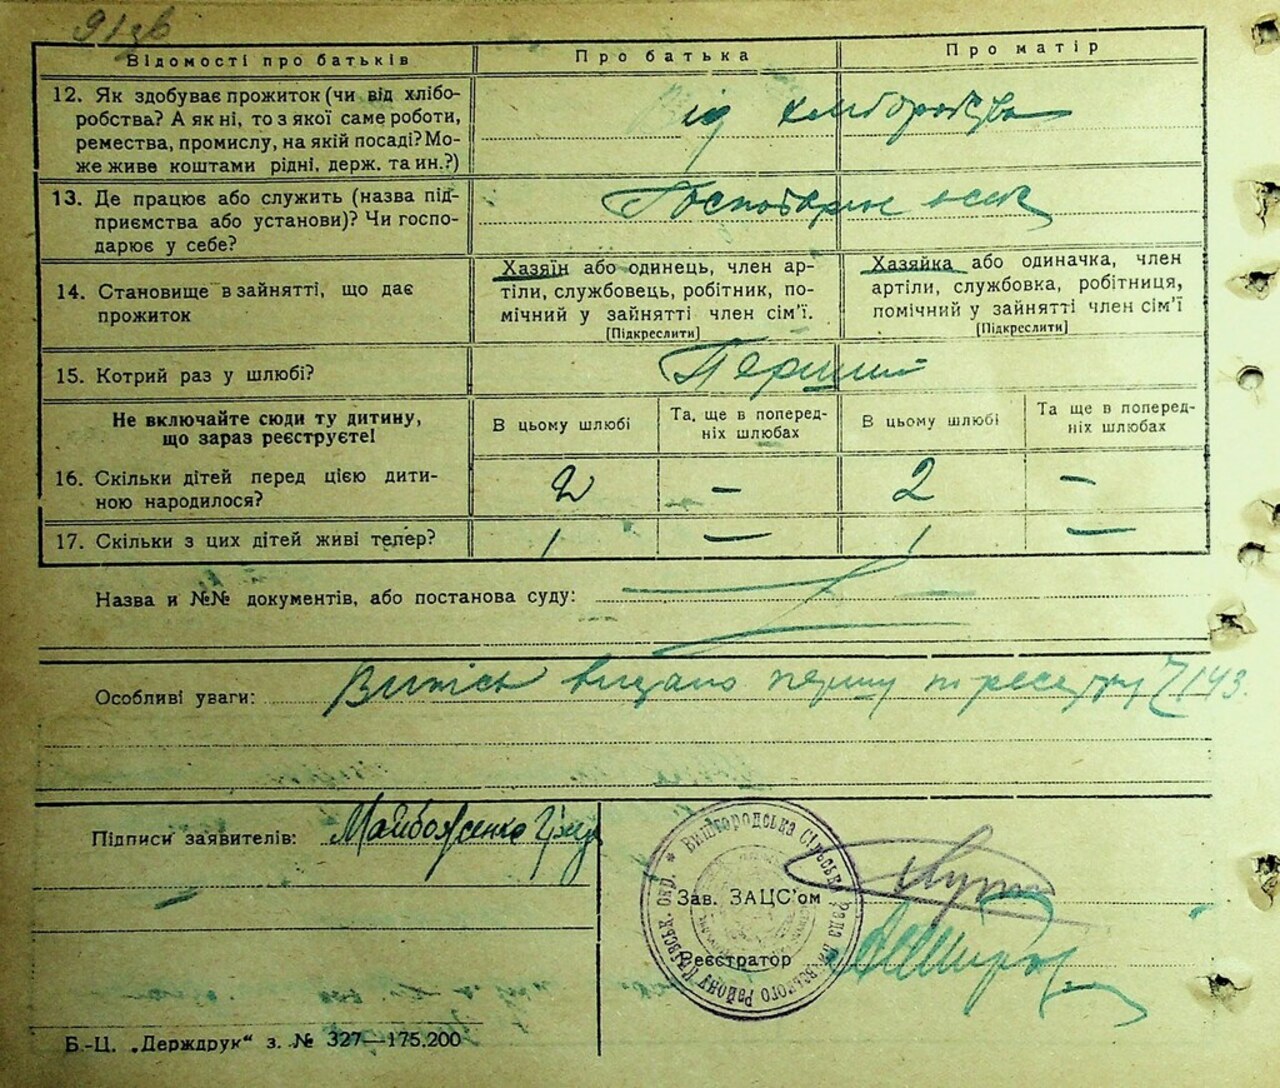 91зв
Відомості про батьків
Про батька
Про матір
12. Як здобуває прожиток (чи від хлібо-
робства? А як ні, то з якої саме роботи,
ремества, промислу, на якій посаді? Мо-
же живе коштами рідні, держ. та ин.?)
Від хліборобства
13. Де працює або служить (назва під-
приємства або установи)? Чи госпо-
дарює у себе?
Господарює
14. Становище в зайнятті, що дає
прожиток
Хазяїн або одинець, член ар-
тіли, службовець, робітник, по-
мічний у зайнятті член сім'ї.
[Підкреслити]
Хазяйка або одиначка, член
артіли, службовка, робітниця,
помічний у зайнятті член сім'ї
[Підкреслити]
15. Котрий раз у шлюбі?
Перший
Не включайте сюди ту дитину,
що зараз реєструєте!
В цьому шлюбі
Та, ще в поперед-
ніх шлюбах
В цьому шлюбі
Та ще в поперед-
ніх шлюбах
16. Скільки дітей перед цією дити-
ною народилося?
2 — 2 —
17. Скільки з цих дітей живі тепер?
1 — 1 —
Назва и №№ документів, або постанова суду:
Особливі уваги: Випись видано першу по реєстру 7143.
Підписи заявителів: Майбоженко
Вишгородська Сільська Рада Київського Району Київськ. окр. *
Зав. ЗАЦС'ом
Реєстратор
Б.-Ц. „Держдрук“ з. № 327—175.200